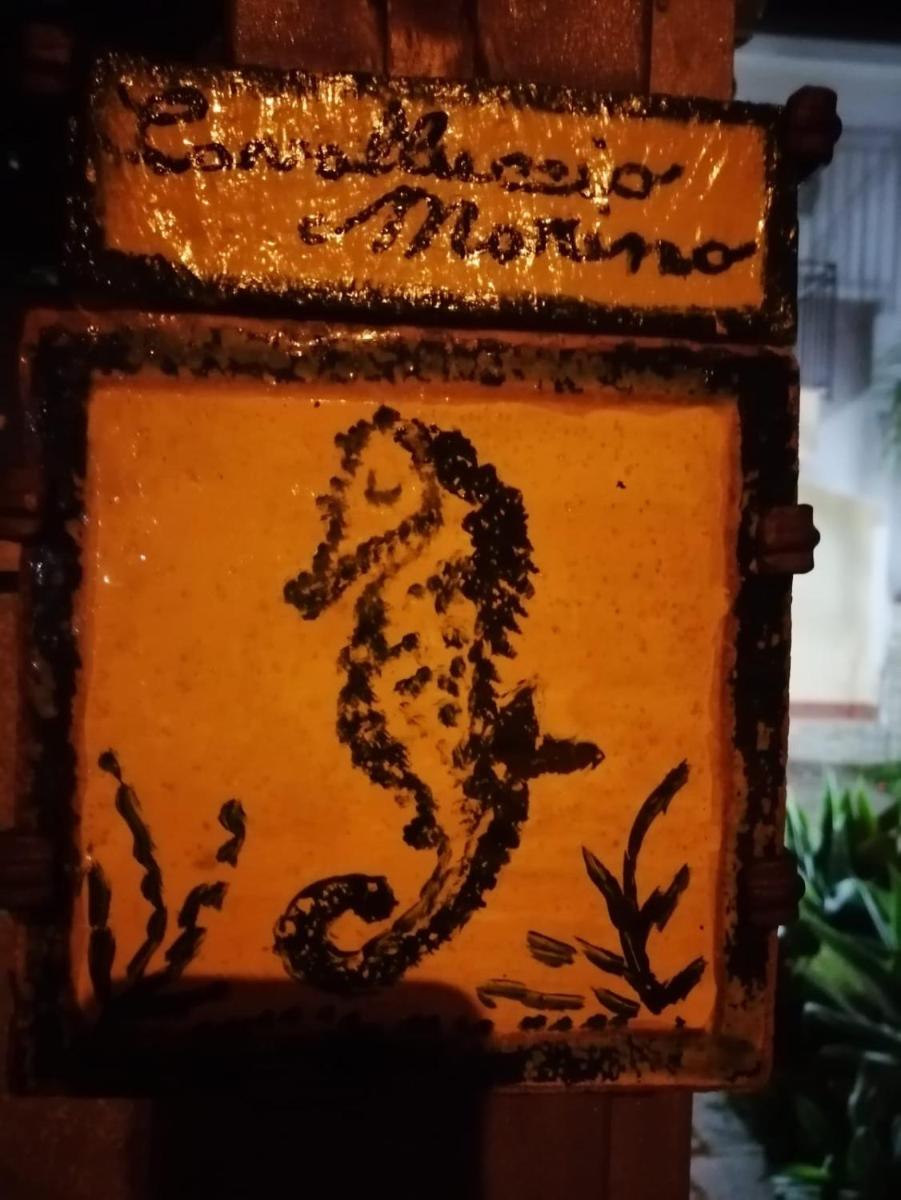 Cavalluccio
Marino